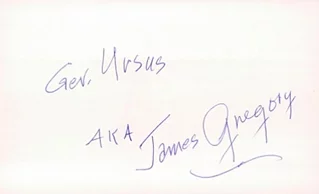 Gen. Ursus
AKA
James Gregory